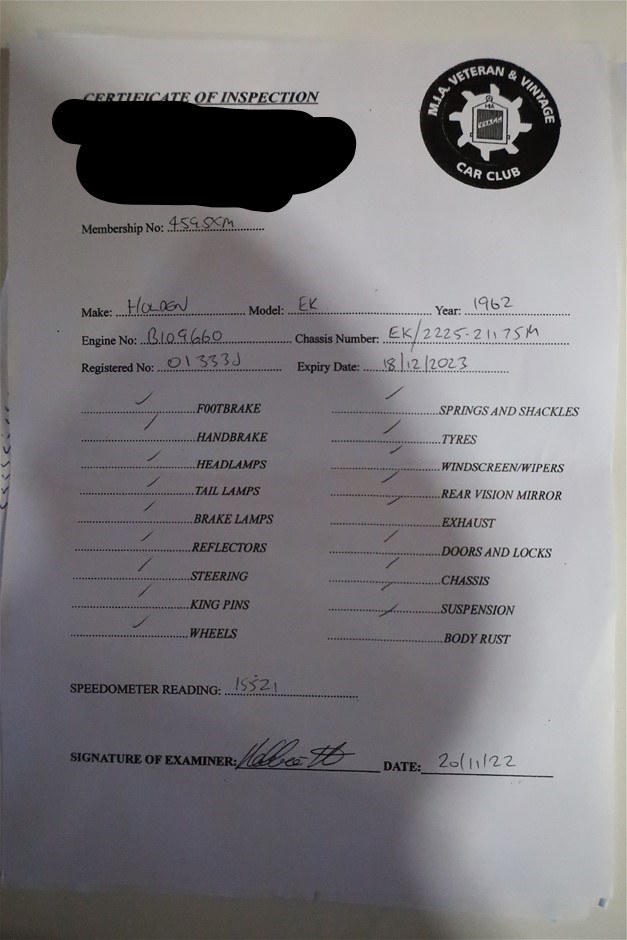 CERTIFICATE OF INSPECTION
M.I.A. VETERAN & VINTAGE
CAR CLUB
Membership No: 4595XM
Make: HOLDEN Model: EK Year: 1962
Engine No: B109660 Chassis Number: EK/2225-21175M
Registered No: 01333J Expiry Date: 18/12/2023
FOOTBRAKE SPRINGS AND SHACKLES
HANDBRAKE TYRES
HEADLAMPS WINDSCREEN/WIPERS
TAIL LAMPS REAR VISION MIRROR
BRAKE LAMPS EXHAUST
REFLECTORS DOORS AND LOCKS
STEERING CHASSIS
KING PINS SUSPENSION
WHEELS BODY RUST
SPEEDOMETER READING: 15521
SIGNATURE OF EXAMINER: DATE: 20/11/22